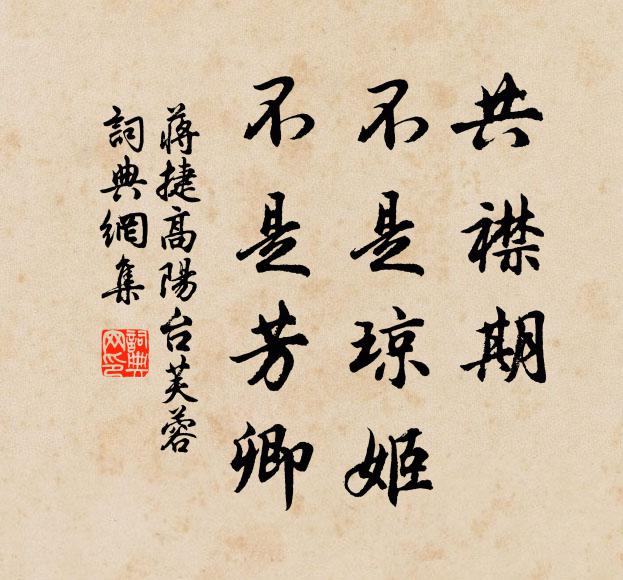 共襟期
不是琼姬
不是芳卿
蔣捷高陽台芙蓉
詞典網集
詞典网印